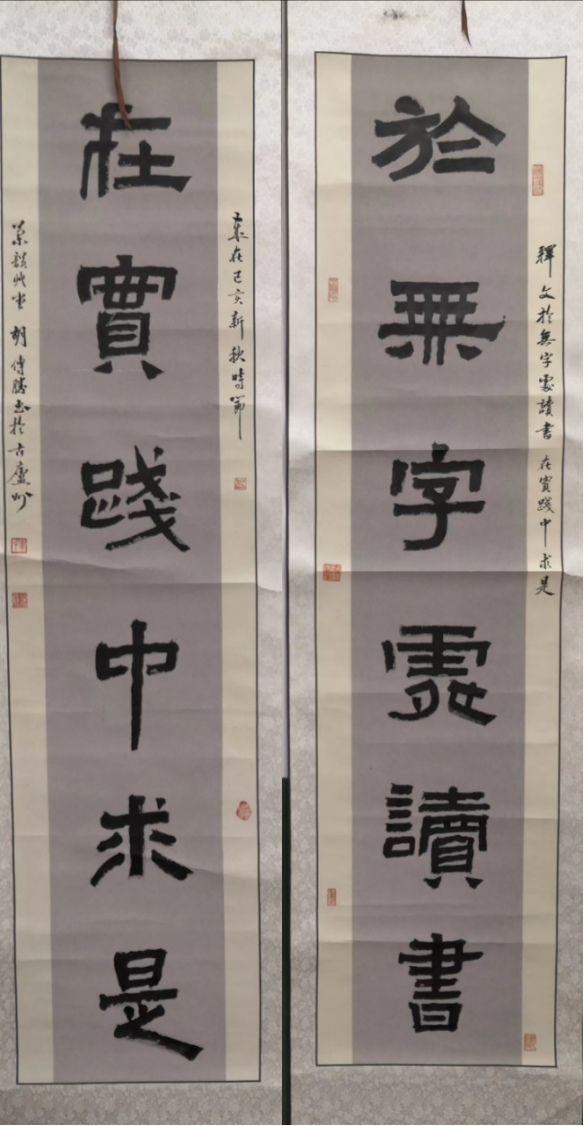 釋文於無字處讀書 在實踐中求是
於無字處讀書
歲在己亥新秋時節
在實踐中求是
韻艸堂 胡傳勝书於古廬州